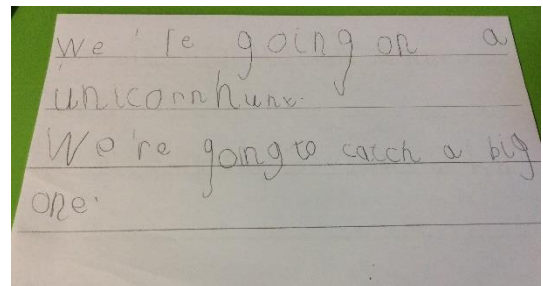 We're going on a
unicorn hunt.
We're going to catch a big
one.